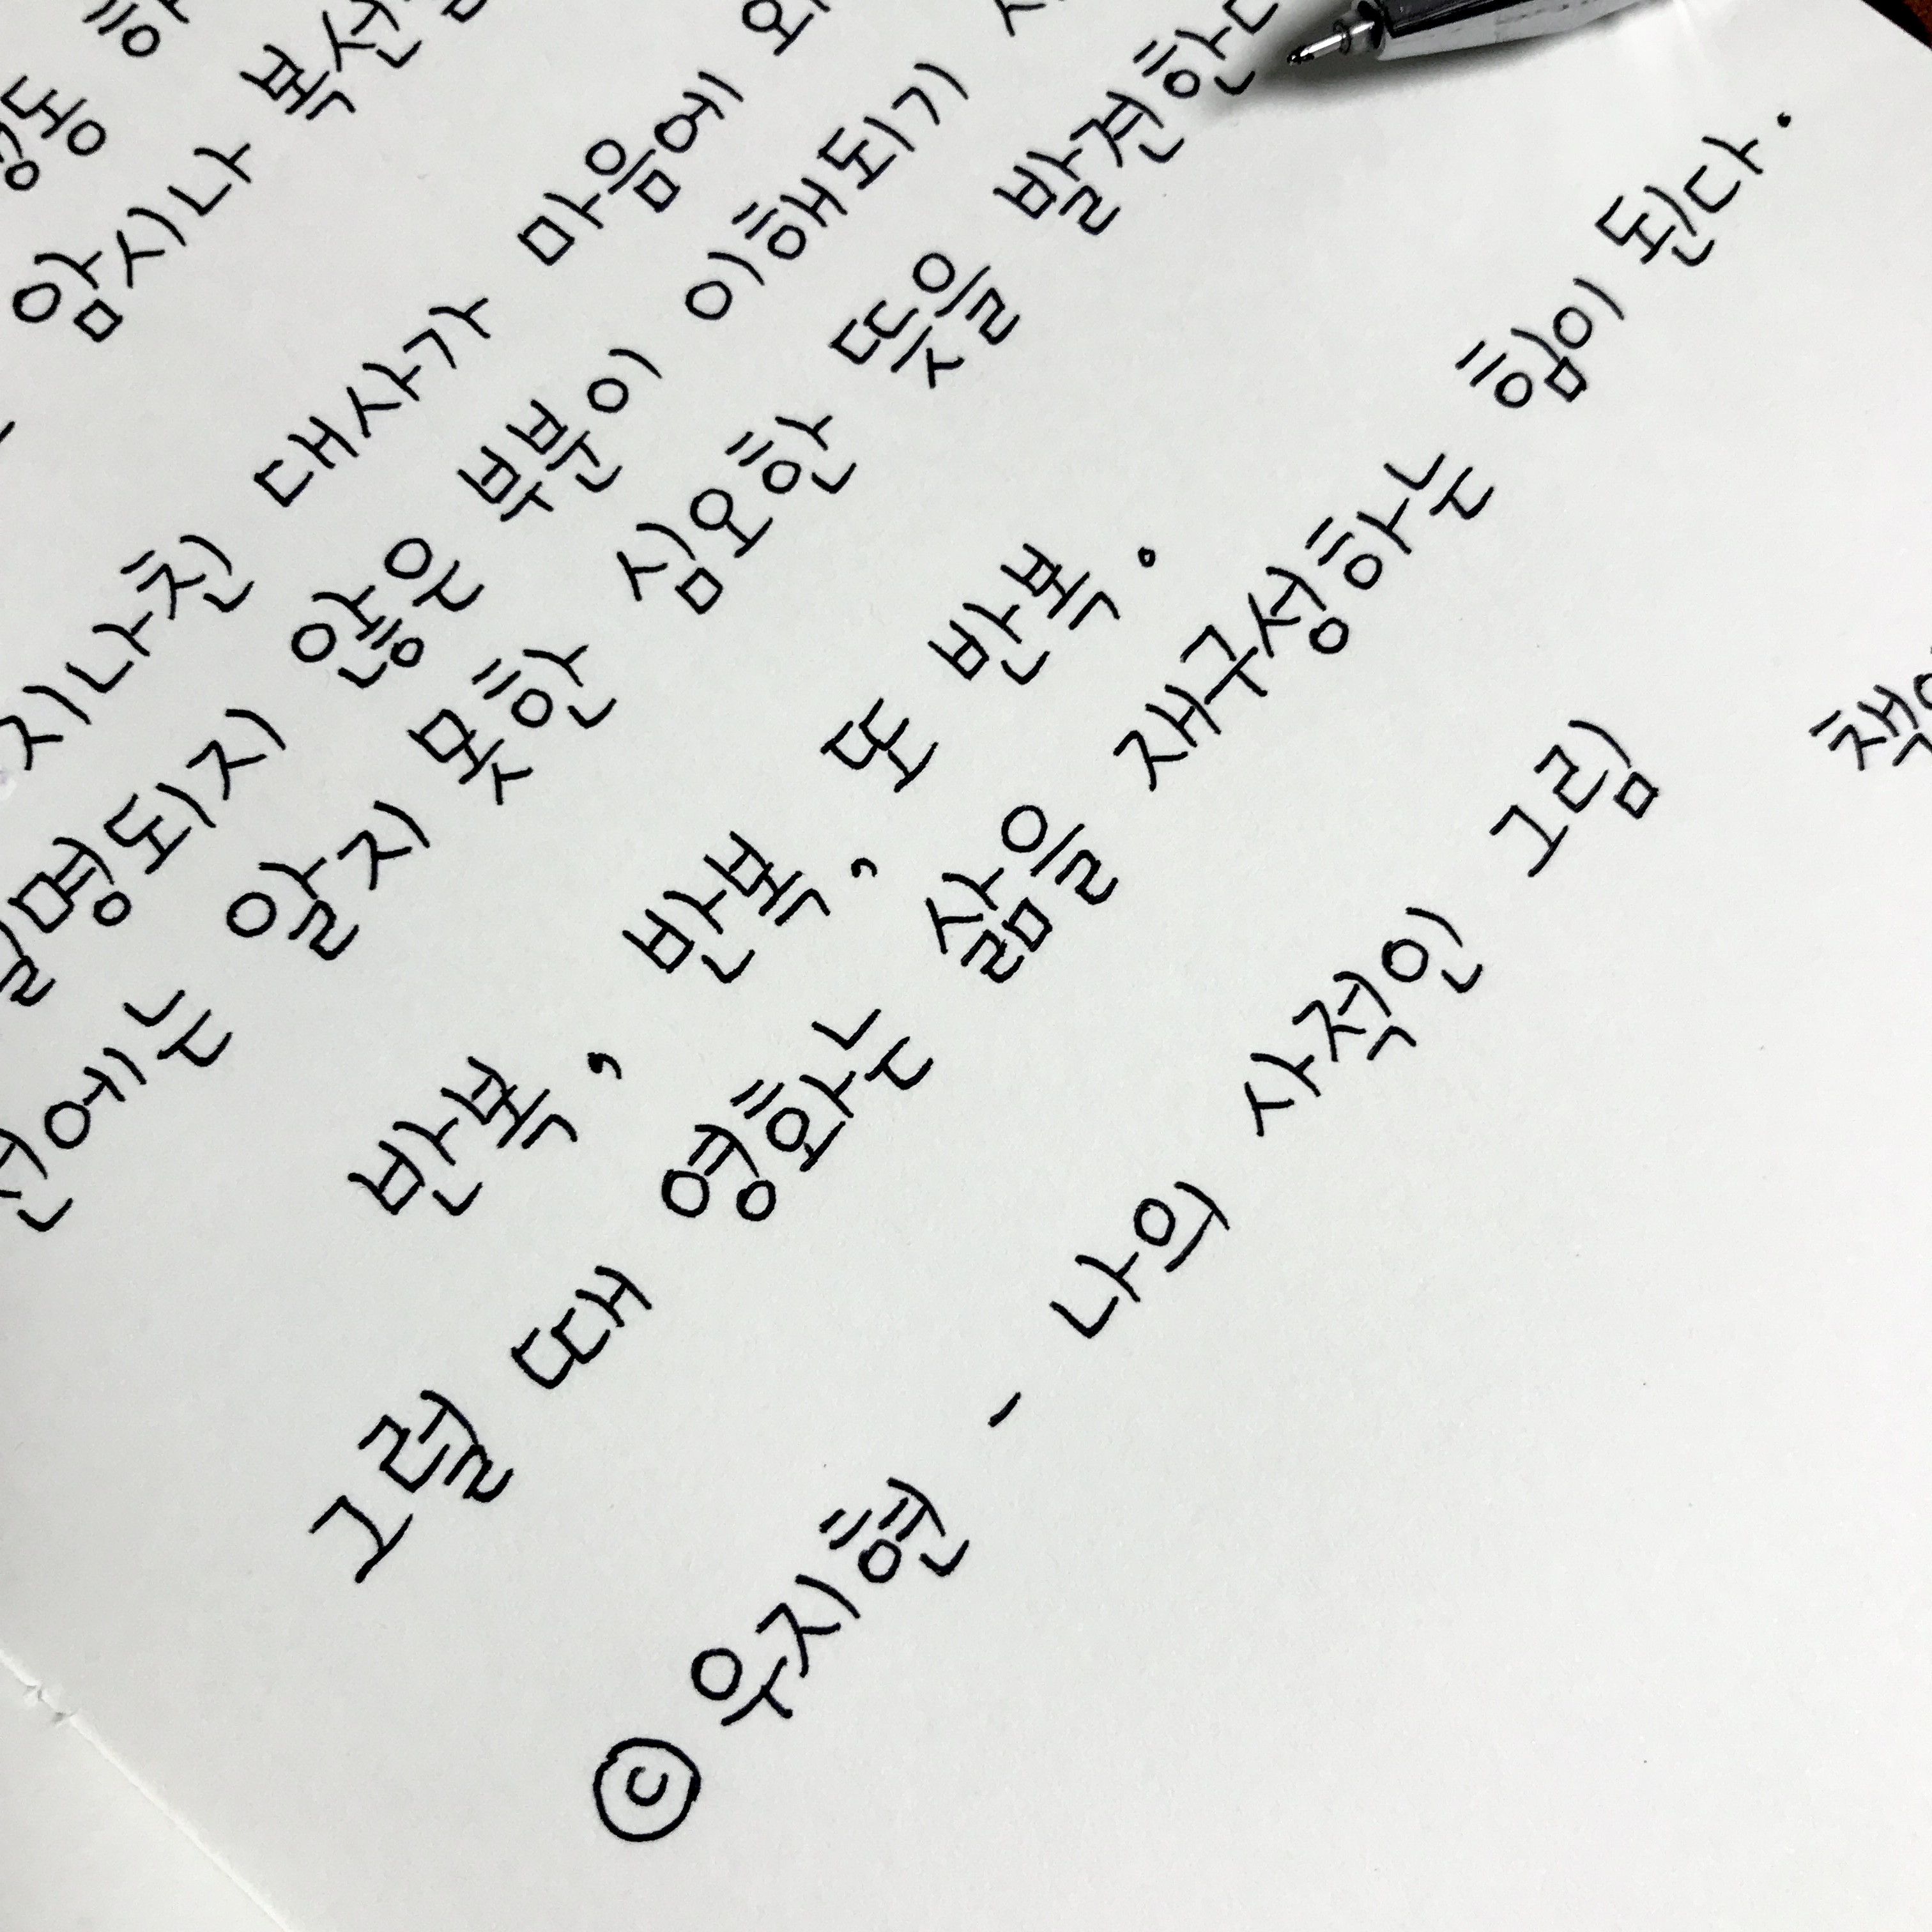 암시나
지나친 대사가 마음에
명되지 않은 부분이 이해되기
에는 알지 못한 심오한 뜻을 발견한
반복, 반복, 또 반복.
그럴 때 영화는 삶을 재구성하는 힘이 된다.
ⓒ 우지현 - 나의 사적인 그림